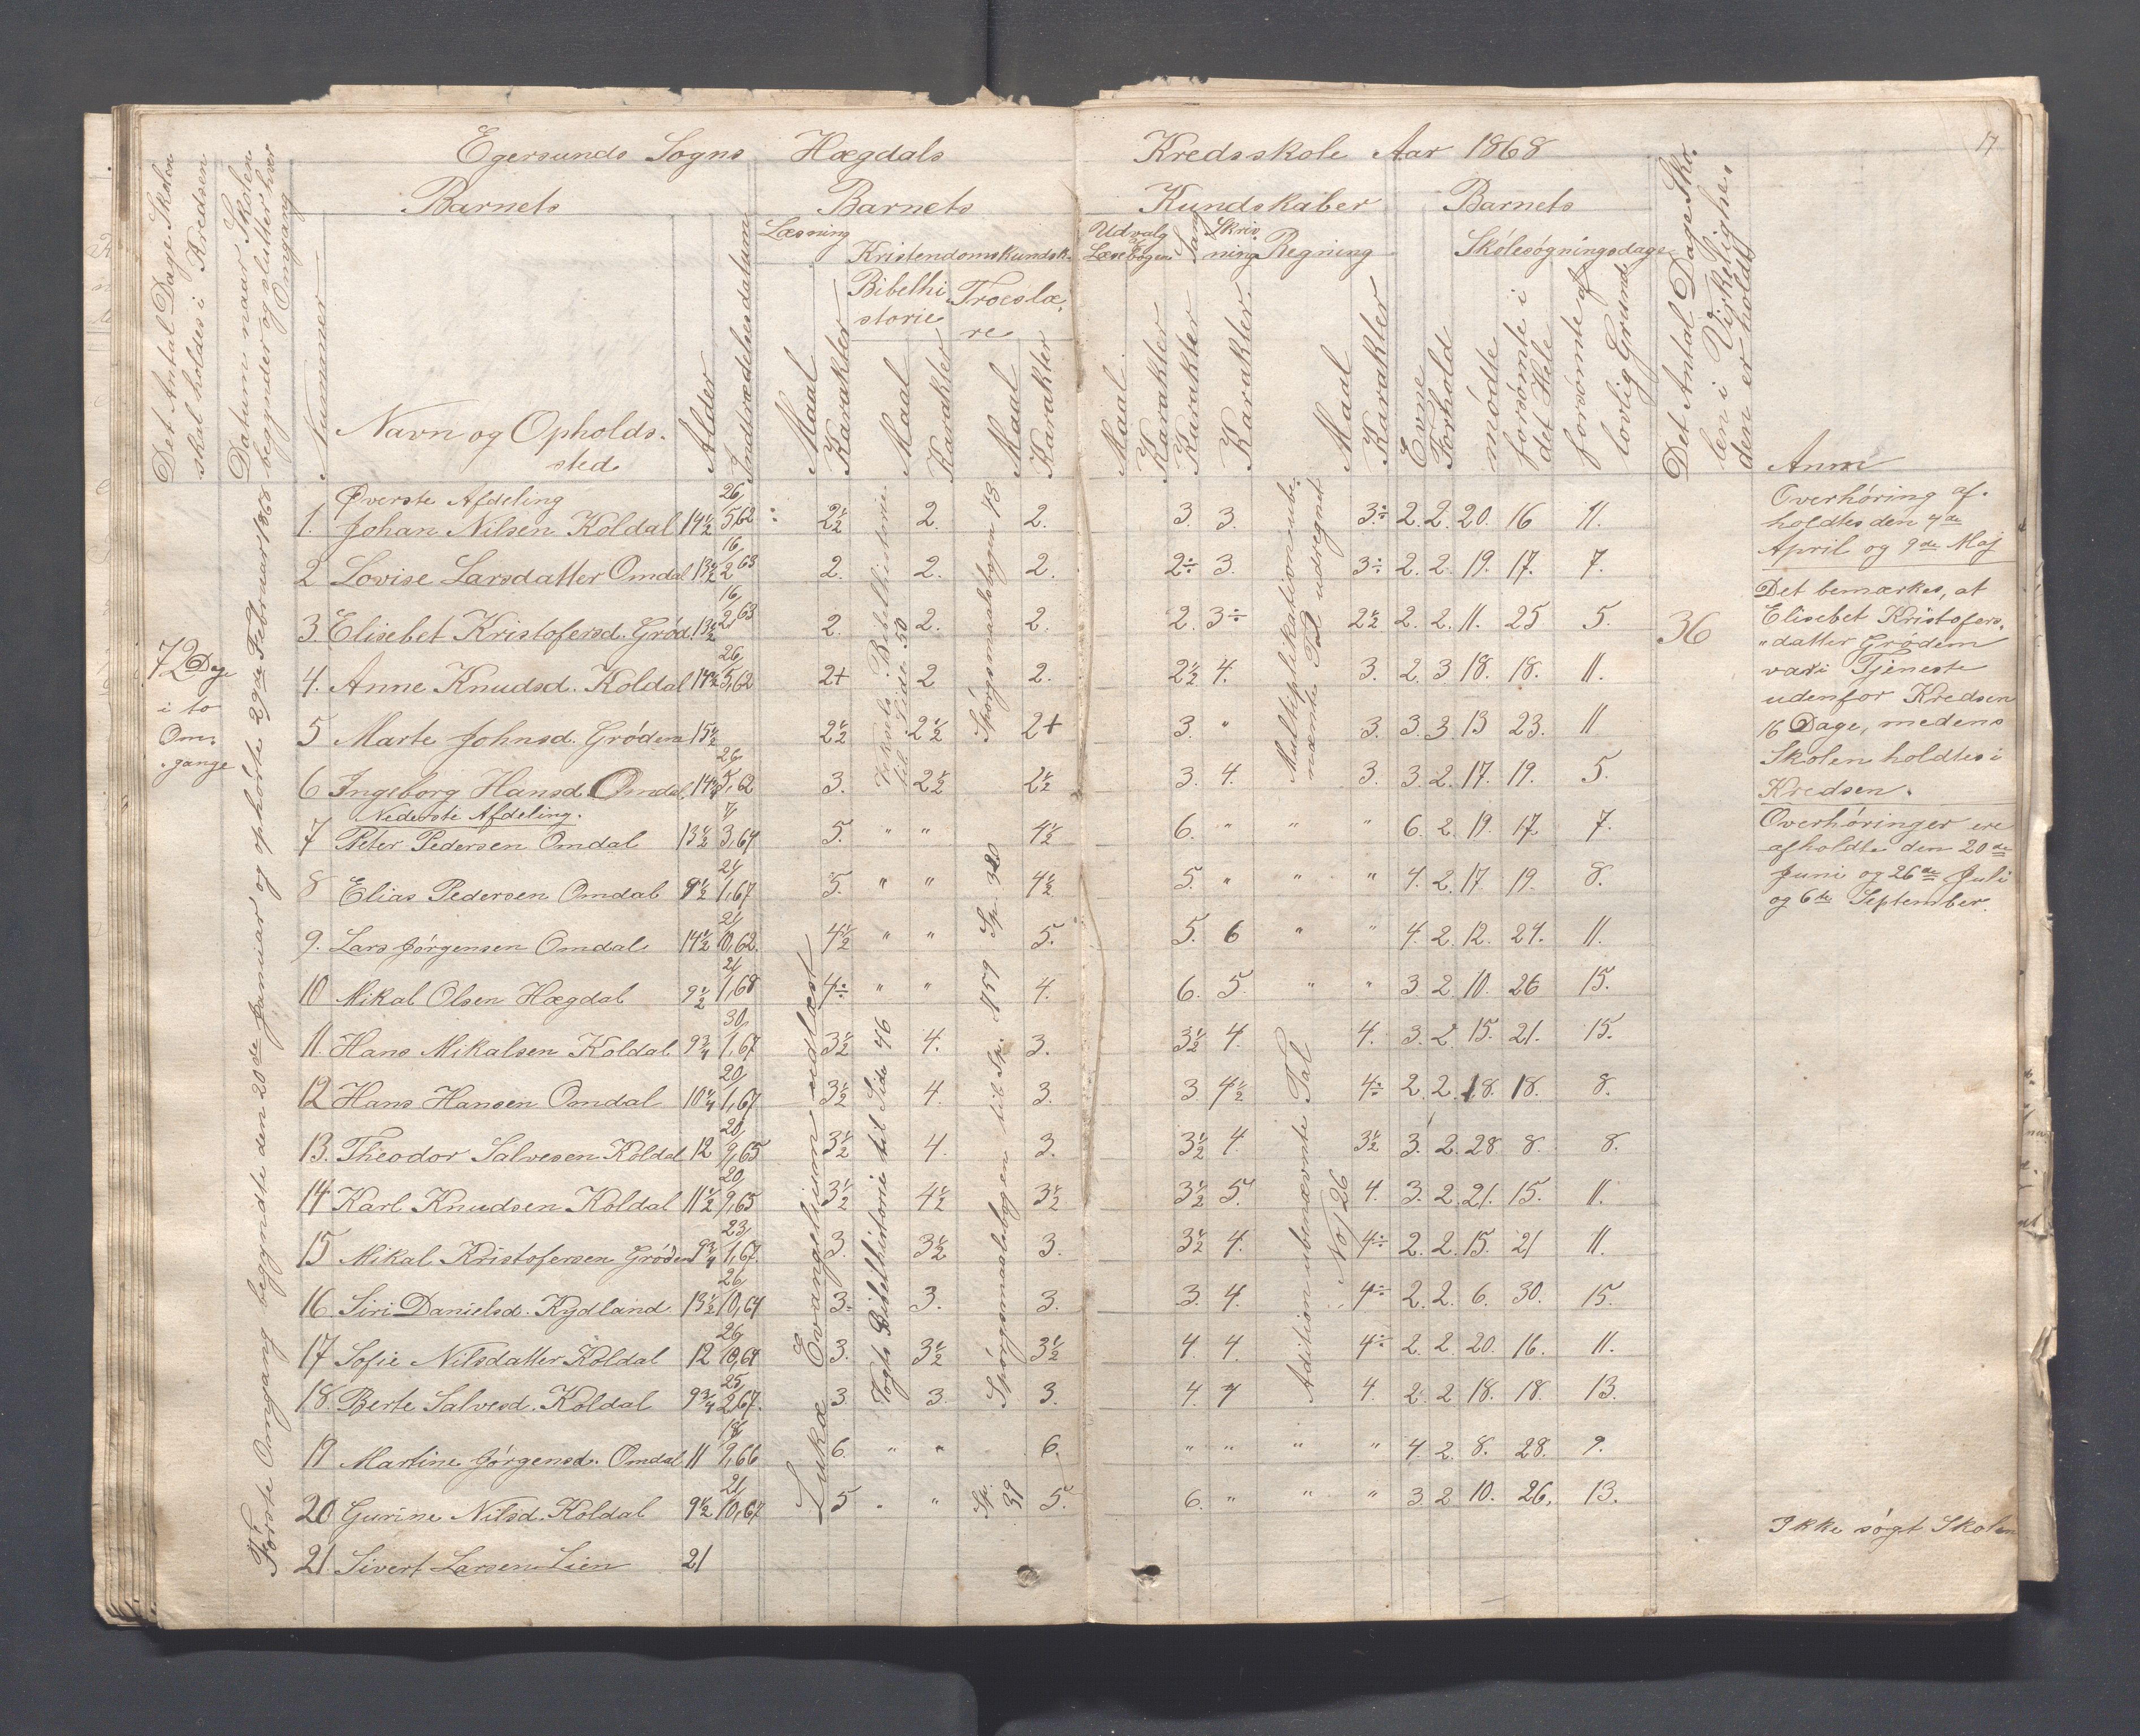 17
Egersunds Sogns Hægdals Kredsskole Aar 1868
Det Antal Dage Skolen
skal holdes i Kredsen
Datum naar Skolen
begynder og slutter hver
Omgang
Barnets
Nummer
Navn og Opholds-
sted
Alder
Indtrædelsesdatum
Barnets Kundskaber
Læsning
Maal
Karakter
Kristendomskundsk.
Bibelhi
storie
Maal
Karakter
Troeslæ-
re
Maal
Karakter
Udvalg
af
Læsebogen
Maal
Karakter
Sang
Karakter
Skriv
ning
Karakter
Regning
Maal
Karakter
Barnets
Evne
Forhold
Skolesøgningsdage
mødte
forsømte i
det Hele
forsømte af
lovlig Grund
Det Antal Dage Sko-
len i Virkelighe-
den er holdt
Anm
72 Dage
i to
Om-
gange
Første Omgang begyndte den 20de Januar og ophørte 29de Februar 1868
Øverste Afdeling
1. Johan Nilsen Koldal 14½ 26/5,62 2½ 2. 2. 3. 3. 3÷ 2. 2. 20. 16 11.
2 Lovise Larsdatter Omdal 13½ 16/2 63 2. 2. 2. 2÷ 3. 3÷ 2. 2. 19. 17. 7.
3. Elisebet Kristofersd. Grød 13½ 16/2,63 2. 2. 2. 2. 3÷ 2½ 2. 2. 11. 25 5.
4. Anne Knudsd. Koldal 14½ 26/5,62 2+ 2 2. 2½ 4. 3. 2. 3 18. 18. 11.
5 Marte Johnsd. Grødem 15½ 2½ 2½ 2+ 3. " 3. 3. 3. 13 23. 11
6 Ingeborg Hansd. Omdal 14¾ 26/5,62 3. 2½ 2½ 3. 4. 3. 3. 2. 17. 19. 5.
Nederste Afdeling.
7 Peter Pedersen Omdal 13½ 3,64 5. " " 4½ 6. " " " 6. 2. 19. 17. 7.
8 Elias Pedersen Omdal 9½ 21/1,67 5. " " 4½ 5. " " " 4. 2. 17. 19. 8.
9. Lars Jørgensen Omdal 14½ 21/10,62. 4½ " " 5. 5. 6 " " 4. 2. 12. 24. 11.
10 Mikal Olsen Hægdal 9½ 21/1,68 4÷ " " 4. 6. 5. " " 3. 2. 10. 26 15.
11. Hans Mikalsen Koldal 9¾ 30/1,67 3½ 4. 3. 3½ 4. 4. 3. 2. 15. 21. 15.
12 Hans Hansen Omdal 10¼ 20/1,67 3½ 4. 3. 3. 4½ 4÷ 2. 2. 18. 18. 8.
13. Theodor Salvesen Koldal 12 20/9,65 3½ 4. 3. 3½ 4 3½ 3. 2. 28. 8. 8.
14 Karl Knudsen Koldal 11½ 20/9,65 3½ 4½ 3½ 3½ 5. 4. 3. 2. 21. 15. 11.
15 Mikal Kristofersen Grødem 9¾ 23/1,67. 3. 3½ 3. 3½ 4. 4÷ 2. 2. 15. 21 11.
16. Siri Danielsd. Kydland 13½ 26/10,64 3. 3. 3. 3. 4. 4÷ 2. 2. 6. 30. 15.
17 Sofie Nilsdatter Koldal 12 26/10,64 3. 3½ 3½ 4. 4. 4÷ 2. 2. 20. 16. 11.
18. Berte Salvesd. Koldal 9¾ 25/2,67. 3. 3. 3. 4. 4 4. 2. 2 18. 18. 13.
19 Martine Jørgensd. Omdal 11 9,66 6. " " 6. " " " " 4. 2. 8. 28. 9.
20 Gurine Nilsd. Koldal 9½ 21/10,67 5 " " 5. 6. " " " 3. 2 10. 26. 13.
21. Sivert Larsen Lien 21
Lukæ Evangelium udlæst
Vogts Bibelhistorie
til Side 50
Vogts Bibelhistorie til Side 46
Spørgsmaalsbogen 43
Spørgsmaalsbogen til Sp. 459 Sp. 320
Sp. 39
Multiplikation ube-
nævnte Tal udregnet
Adition ubenævnte Tal
No 126
36
Overhøring af-
holdtes den 4de
April og 9de Maj
Det bemærkes, at
Elisebet Kristofers-
datter Grødem
var i Tjeneste
udenfor Kredsen
16 Dage, medens
Skolen holdtes i
Kredsen.
Overhøringer ere
afholdte den 20de
Juni og 26de Juli
og 6te September.
Ikke søgt Skolen